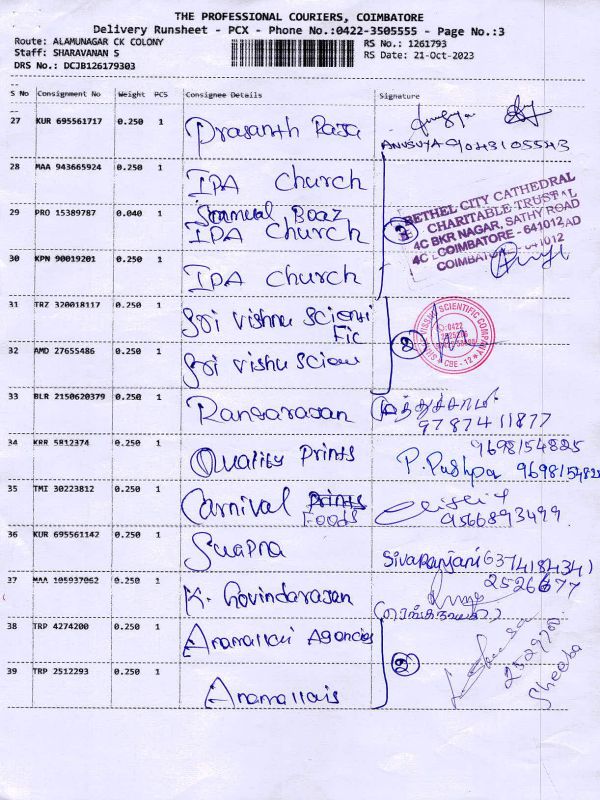 THE PROFESSIONAL COURIERS, COIMBATORE
Delivery Runsheet - PCX - Phone No.:0422-3505555 - Page No.:3
Route: ALAMUNAGAR CK COLONY
RS No.: 1261793
Staff: SHARAVANAN S
RS Date: 21-Oct-2023
DRS No.: DCJB126179303
S No Consignment No Weight PCS Consignee Details Signature
27 KUR 695561717 0.250 1 Prasanth Raja
ANUSUYA 9043105543
28 MAA 943665924 0.250 1 IPA Church
29 PRO 15389787 0.040 1 Boaz
IPA Church
3
BETHEL CITY CATHEDRAL
CHARITABLE TRUST
4C BKR NAGAR, SATHY ROAD
COIMBATORE - 641012
30 KPN 90019201 0.250 1 IPA Church
31 TRZ 320018117 0.250 1 Sri Vishnu Scienti
Fic
2
32 AMD 27655486 0.250 1 Sri Vishu Scien
33 BLR 2150620379 0.250 1 Rangarasan
முத்துச்சாமி
9787411877
34 KRR 5812374 0.250 1 Quality Prints
9698154825
P. Pushpa 9698154825
35 TMI 30223812 0.250 1 Carnival Prints
Foods
9566893499
36 KUR 695561142 0.250 1 Swapna
Sivaranjani 6374184341
37 MAA 105937062 0.250 1 K. Govindarasan
2526677
(ரெங்கநாயகி)
38 TRP 4274200 0.250 1 Anamallai Agencies
2
39 TRP 2512293 0.250 1 Anamallais
Sheeba